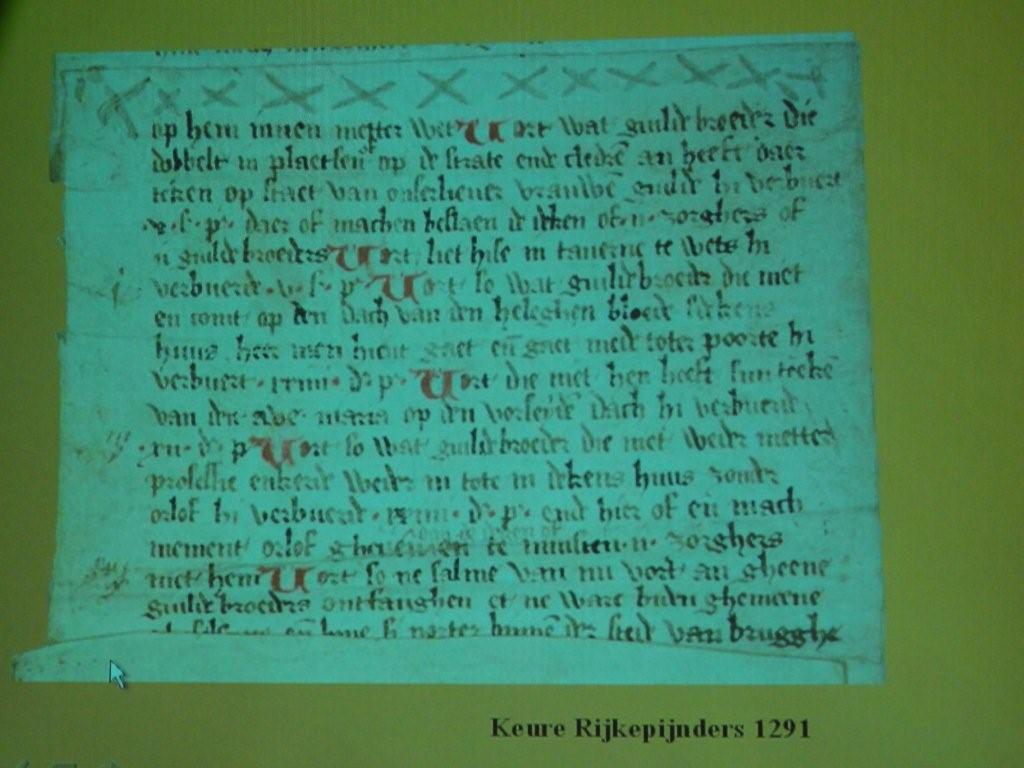 op hem innen metter wet Vort wat guldebroeder die
dobbelt in plaetsen op de strate ende cledre an heeft daer
teken op staet van onserliever vrauwen gulde hi verbuert
.v. s. p. daer of machen bestaen de deken of .ii. zorghers of
.ii. guldebroeders Vort liet hise in taverne te wets hi
verbuerde .v. s. p. Vort so wat guldebroeder die niet
en comt op den dach van den heleghen bloede sdekens
huus heer men hieut gaet en gaet mede toter poorte hi
verbuert .xxiiii. d. p. Vort die niet hen heeft sijn teeken
van der ave maria op den vorseiden dach hi verbuerde
.xii. d. p. Vort so wat guldebroeder die niet weder metter
processie enkerde weder in tote in dekens huus zonder
orlof hi verbuerde .xxiiii. d. p. ende hier of en mach
niement orlof gheven en te minsten .ii. zorghers
met hem Vort so ne salme van nu vort an gheene
guldebroeders ontfanghen et ne ware bidn ghemeene
binnen der stede van brugghe
Keure Rijkepijnders 1291